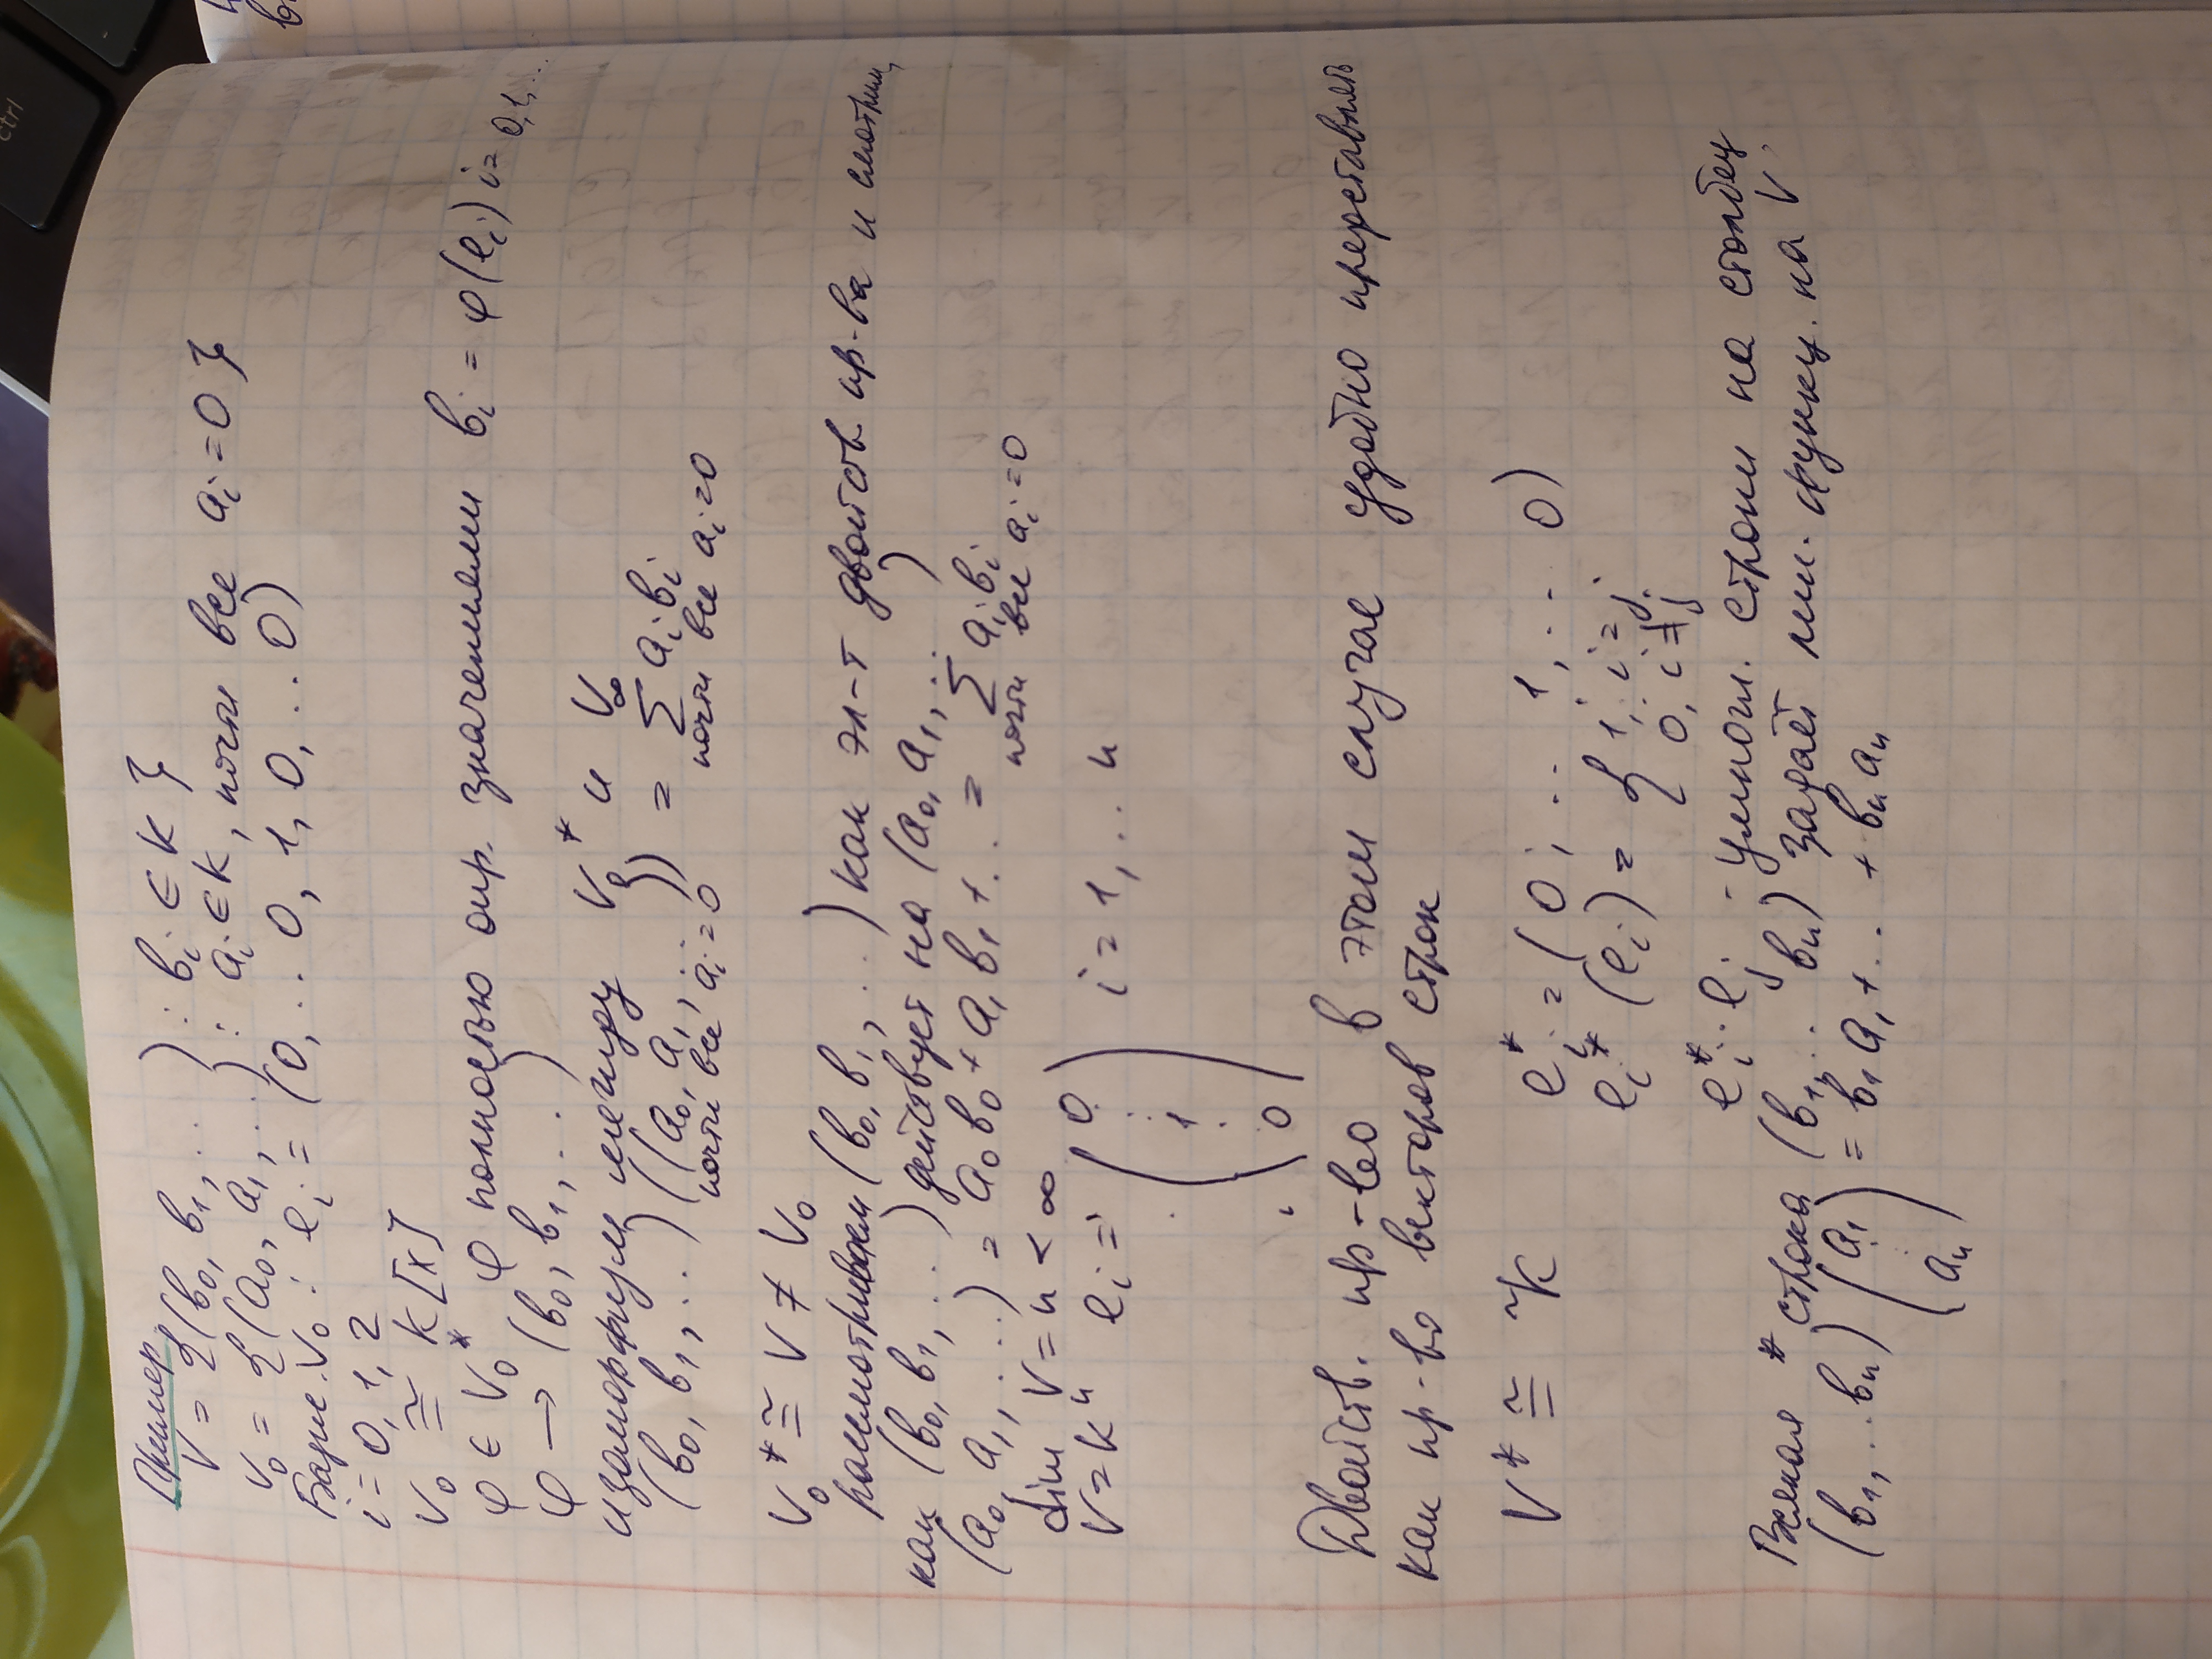 Пример
V = {(b₀, b₁, ...) : bᵢ ∈ K}
V₀ = {(a₀, a₁, ...) : aᵢ ∈ K, почти все aᵢ = 0}
Базис V₀ : eᵢ = (0, .. 0, 1, 0, .. 0)
i = 0, 1, 2
V₀ ≅ K[x]
φ ∈ V₀* φ полностью опр. значениями bᵢ = φ(eᵢ) i = 0, 1, ...
φ → (b₀, b₁, ...)
изоморфизм между V₀* и V∞
(b₀, b₁, ..) ((a₀, a₁, ...)) = ∑ aᵢbᵢ
почти все aᵢ = 0 почти все aᵢ = 0
V₀* ≅ V ≠ V₀
рассматриваем (b₀, b₁, ...) как эл-т двойств. пр-ва и смотрим,
как (b₀, b₁, ...) действует на (a₀, a₁, ...)
(a₀, a₁, ....) = a₀b₀ + a₁b₁ + .. = ∑ aᵢbᵢ
почти все aᵢ = 0
dim V = n < ∞
V = Kⁿ eᵢ = (0 : 1 . 0) i = 1, .. n
Двойств. пр-во в этом случае удобно представлять
как пр-во векторов строк
V* ≅ ⁿK eᵢ* = (0, .. 1, .. 0)
eᵢ* (eᵢ) = { 1, i = j
0, i ≠ j
eᵢ* · eⱼ - умнож. строки на столбец
Всякая строка (b₁, .. bₙ) задаёт лин. функц. на V
(b₁, .. bₙ) (a₁ : aₙ) = b₁a₁ + .. + bₙaₙ
ctrl